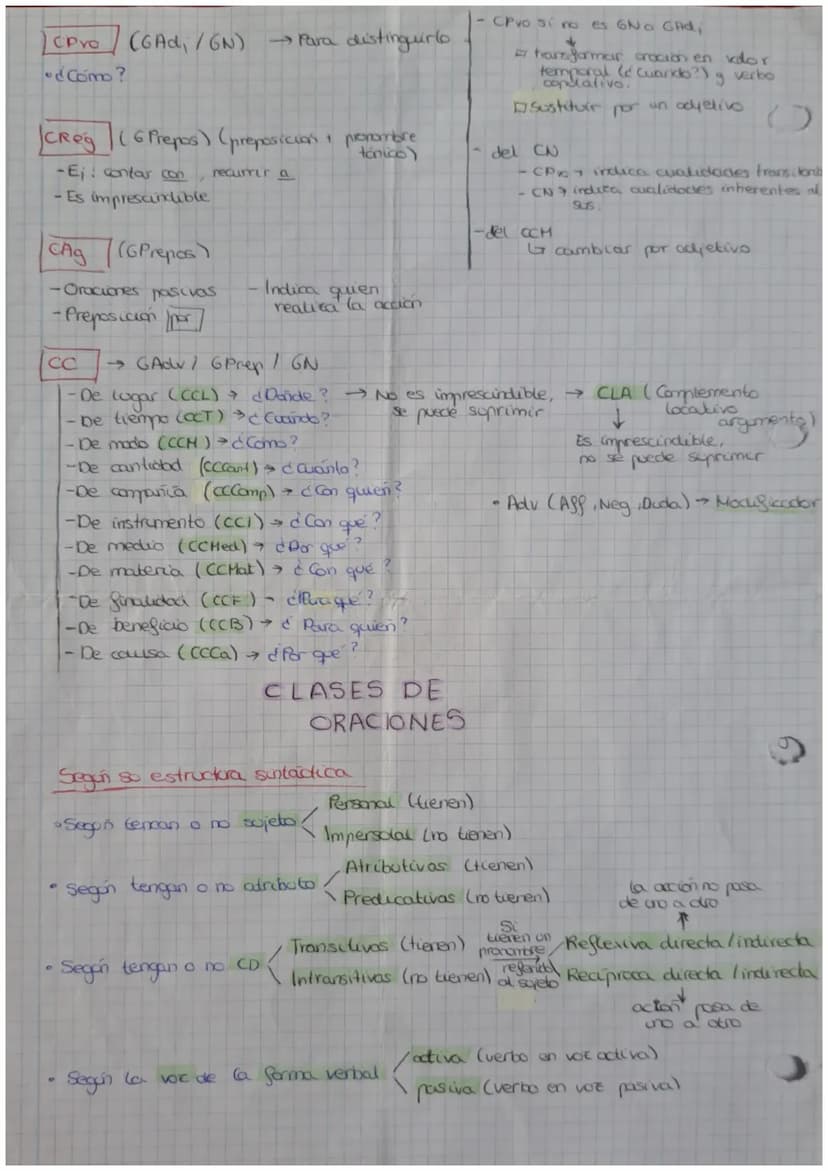 CPvo (GAdj / GN) → Para distinguirlo
• ¿Cómo?
- CPvo si no es GN o GAdj
↓
transformar oración en valor
temporal (¿Cuándo?) y verbo
copulativo.
Sustituir por un adjetivo
- del CN
- CPvo → indica cualidades transitorio
- CN → indica cualidades inherentes al
sus.
- del CCM
↳ cambiar por adjetivo
CReg (GPrepos) (preposición + pronombre
tónico)
- Ej: contar con, recurrir a
- Es imprescindible
CAg (GPrepos)
- Oraciones pasivas
- Preposición por
- Indica quien
realiza la acción
CC → GAdv / GPrep / GN
- De lugar (CCL) → ¿Dónde? → No es imprescindible, → CLA (Complemento
se puede suprimir
locativo
argumento)
↓
Es imprescindible,
no se puede suprimir
- De tiempo (CCT) → ¿Cuándo?
- De modo (CCM) → ¿Cómo?
- De cantidad (CCCant) → ¿Cuánto?
- De compañía (CCComp) → ¿Con quién?
• Adv (Aff, Neg, Duda) → Modificador
- De instrumento (CCI) → ¿Con qué?
- De medio (CCMed) → ¿Por qué?
- De materia (CCMat) → ¿Con qué?
- De finalidad (CCF) → ¿Para qué?
- De beneficio (CCB) → ¿Para quién?
- De causa (CCCa) → ¿Por qué?
CLASES DE
ORACIONES
Según su estructura sintáctica
• Según tengan o no sujeto
Personal (tienen)
Impersonal (no tienen)
• Según tengan o no atributo
Atributivas (tienen)
Predicativas (no tienen)
• Según tengan o no CD
Transitivos (tienen)
Intransitivas (no tienen)
Si
tienen un
pronombre
referido
al sujeto
la acción no pasa
de uno a otro
↑
Reflexiva directa / indirecta
Recíproca directa / indirecta
↓
acción pasa de
uno a otro
• Según la voz de la forma verbal
activa (verbo en voz activa)
pasiva (verbo en voz pasiva)